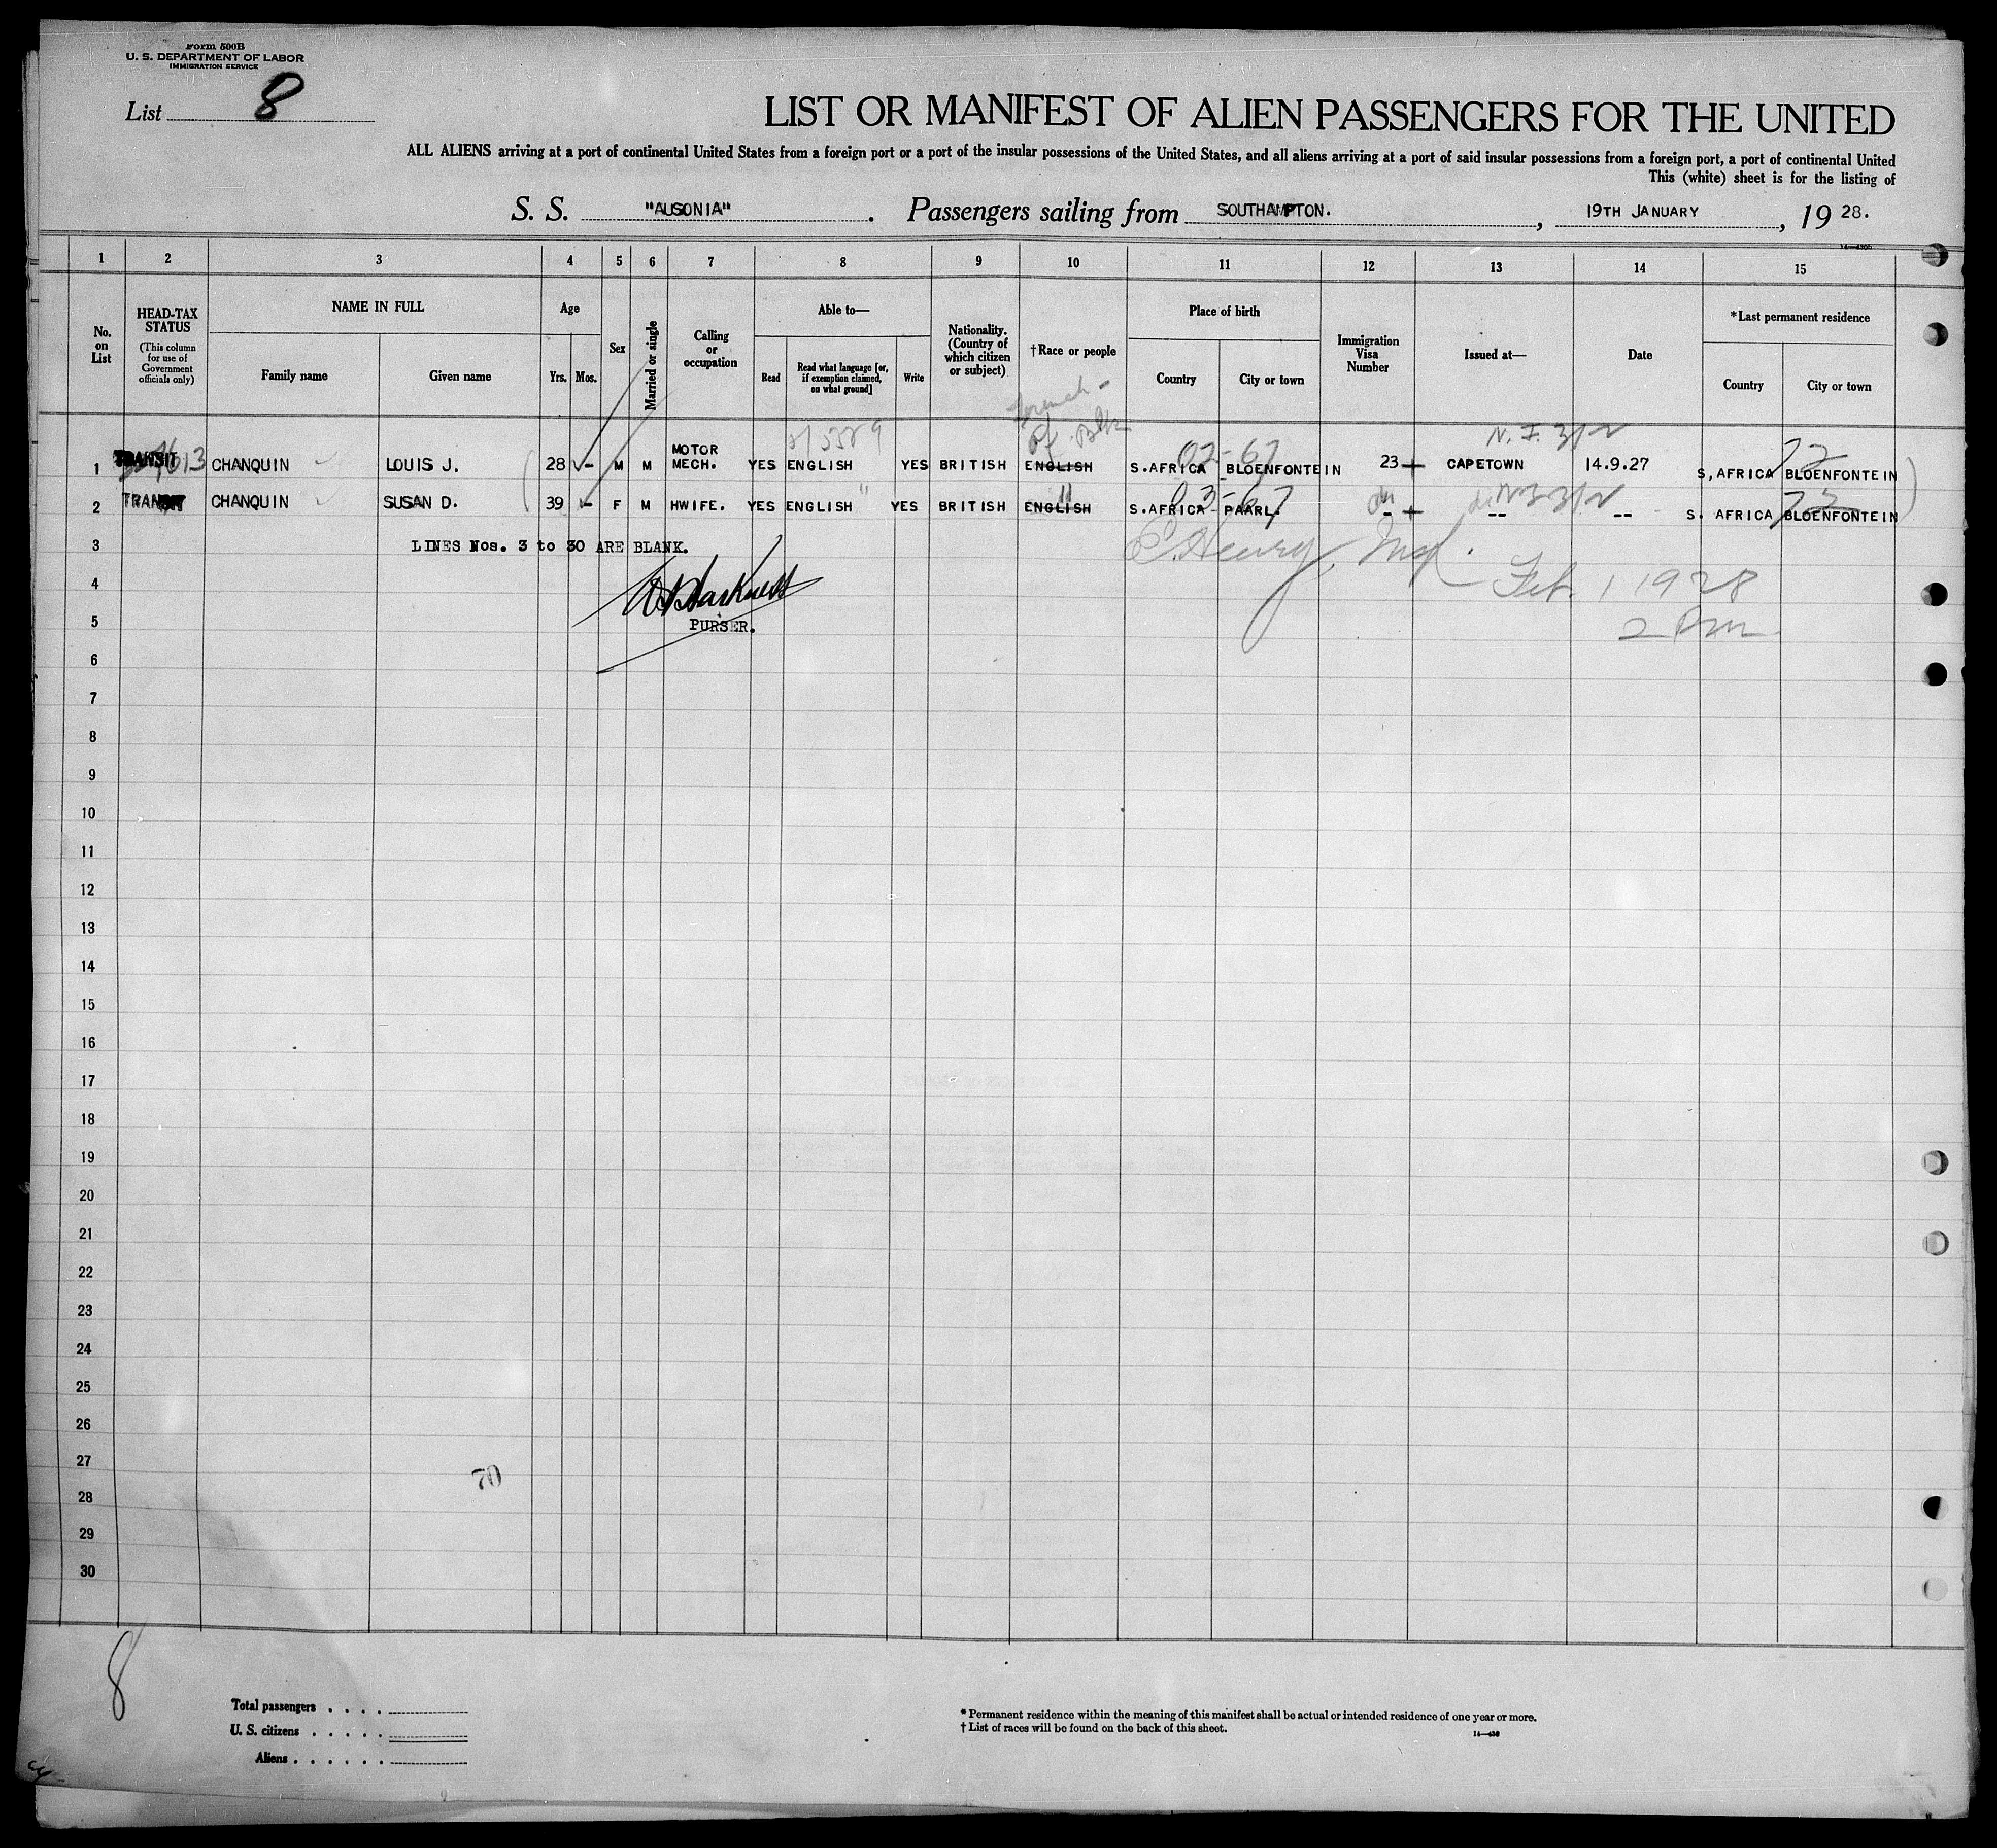 Form 500B
U. S. DEPARTMENT OF LABOR
IMMIGRATION SERVICE
List 8
LIST OR MANIFEST OF ALIEN PASSENGERS FOR THE UNITED
ALL ALIENS arriving at a port of continental United States from a foreign port or a port of the insular possessions of the United States, and all aliens arriving at a port of said insular possessions from a foreign port, a port of continental United
This (white) sheet is for the listing of
S. S. "AUSONIA" . Passengers sailing from SOUTHAMPTON. , 19TH JANUARY , 19 28.
1 2 3 4 5 6 7 8 9 10 11 12 13 14 15
No. on List
HEAD-TAX STATUS
(This column for use of Government officials only)
NAME IN FULL
Family name
Given name
Age
Yrs.
Mos.
Sex
Married or single
Calling or occupation
Able to—
Read
Read what language [or, if exemption claimed, on what ground]
Write
Nationality. (Country of which citizen or subject)
†Race or people
Place of birth
Country
City or town
Immigration Visa Number
Issued at—
Date
*Last permanent residence
Country
City or town
French -
02-67
N.I. 3/2
72
1 TRANSIT CHANQUIN LOUIS J. 28 - M M MOTOR MECH. YES ENGLISH YES BRITISH ENGLISH S.AFRICA BLOENFONTEIN 23 CAPETOWN 14.9.27 S,AFRICA BLOENFONTEIN
03-67
2 TRANSIT CHANQUIN SUSAN D. 39 - F M HWIFE. YES ENGLISH " YES BRITISH ENGLISH S.AFRICA PAARL. - -- -- S. AFRICA BLOENFONTEIN
3 LINES Nos. 3 to 30 ARE BLANK.
4 Feb. 1 1928
5 PURSER. 2 Pm
6
7
8
9
10
11
12
13
14
15
16
17
18
19
20
21
22
23
24
25
26
27
70
28
29
30
8
Total passengers . . . .
U. S. citizens . . . . .
Aliens . . . . . .
* Permanent residence within the meaning of this manifest shall be actual or intended residence of one year or more.
† List of races will be found on the back of this sheet.